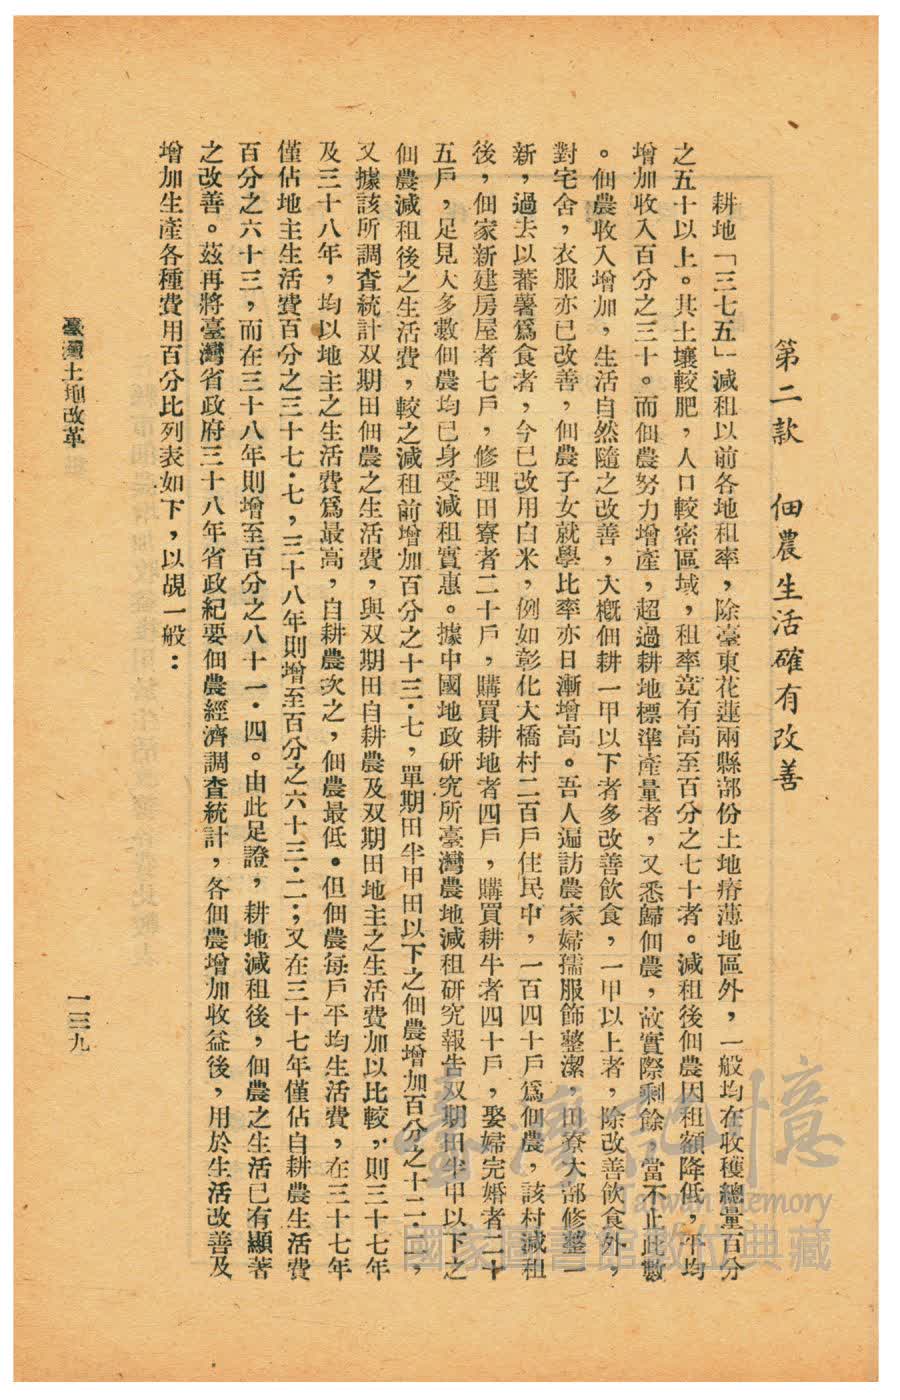 第二款　佃農生活確有改善
耕地「三七五」減租以前各地租率，除臺東花蓮兩縣部份土地瘠薄地區外，一般均在收穫總量百分
之五十以上。其土壤較肥，人口較密區域，租率竟有高至百分之七十者。減租後佃農因租額降低，平均
增加收入百分之三十。而佃農努力增產，超過耕地標準產量者，又悉歸佃農，故實際剩餘，當不止此數
。佃農收入增加，生活自然隨之改善，大概佃耕一甲以下者多改善飲食，一甲以上者，除改善飲食外，
對宅舍，衣服亦已改善，佃農子女就學比率亦日漸增高。吾人遍訪農家婦孺服飾整潔，田寮大部修整一
新，過去以蕃薯爲食者，今已改用白米，例如彰化大橋村二百戶住民中，一百四十戶爲佃農，該村減租
後，佃家新建房屋者七戶，修理田寮者二十戶，購買耕地者四戶，購買耕牛者四十戶，娶婦完婚者二十
五戶，足見大多數佃農均已身受減租實惠。據中國地政研究所臺灣農地減租研究報告双期田半甲以下之
佃農減租後之生活費，較之減租前增加百分之十三・七，單期田半甲田以下之佃農增加百分之十二・二，
又據該所調查統計双期田佃農之生活費，與双期田自耕農及双期田地主之生活費加以比較，則三十七年
及三十八年，均以地主之生活費爲最高，自耕農次之，佃農最低。但佃農每戶平均生活費，在三十七年
僅佔地主生活費百分之三十七・七，三十八年則增至百分之六十三・二；又在三十七年僅佔自耕農生活費
百分之六十三，而在三十八年則增至百分之八十一・四。由此足證，耕地減租後，佃農之生活已有顯著
之改善。茲再將臺灣省政府三十八年省政紀要佃農經濟調查統計，各佃農增加收益後，用於生活改善及
增加生產各種費用百分比列表如下，以覘一般：
臺灣土地改革
一三九
臺灣記憶
Taiwan Memory
國家圖書館數位典藏